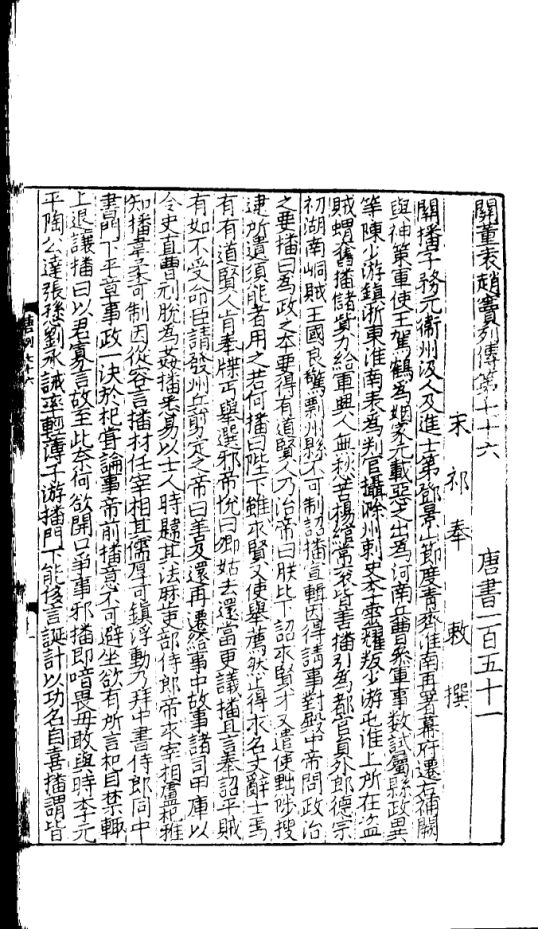 關董袁趙竇列傳第七十六　唐書一百五十一
宋祁奉　敕　撰
關播字務元衞州汲人及進士第鄧景山節度青齊淮南再署幕府遷右補闕
與神策軍使王駕鶴爲姻家元載惡之出爲河南兵曹參軍事數試屬縣政異
等陳少游鎮浙東淮南表爲判官攝滁州刺史李靈耀叛少游屯淮上所在盜
賊蝟奮播儲貲力給軍興人無愁苦楊綰常衮皆善播引爲都官員外郎德宗
初湖南峒賊王國良驚剽州縣不可制詔播宣輯因得請事對殿中帝問政治
之要播曰爲政之本要得有道賢人乃治帝曰朕比下詔求賢才又遣使黜陟搜
逮所遺須能者用之若何播曰陛下雖求賢又使舉薦然止得求名文辭士焉
有有道賢人肯奉牒丐舉選邪帝悅曰卿姑去還當更議播且言奉詔平賊
有如不受命臣請發州兵翦定之帝曰善及還再遷給事中故事諸司甲庫以
令史直曹刓脫爲姦播悉易以士人時韙其法麻吏部侍郎帝求宰相盧杞雅
知播韋柔可制因從容言播材任宰相其儒厚可鎮浮動乃拜中書侍郎同中
書門下平章事政一決於杞嘗論事帝前播意不可避坐欲有所言杞目禁輒
上退讓播曰以君寡言故至此奈何欲開口爭事邪播即喑畏毋敢與時李元
平陶公達張愻劉承誡率輕薄子游播門下能侈言誕計以功名自喜播謂皆
唐列七十六